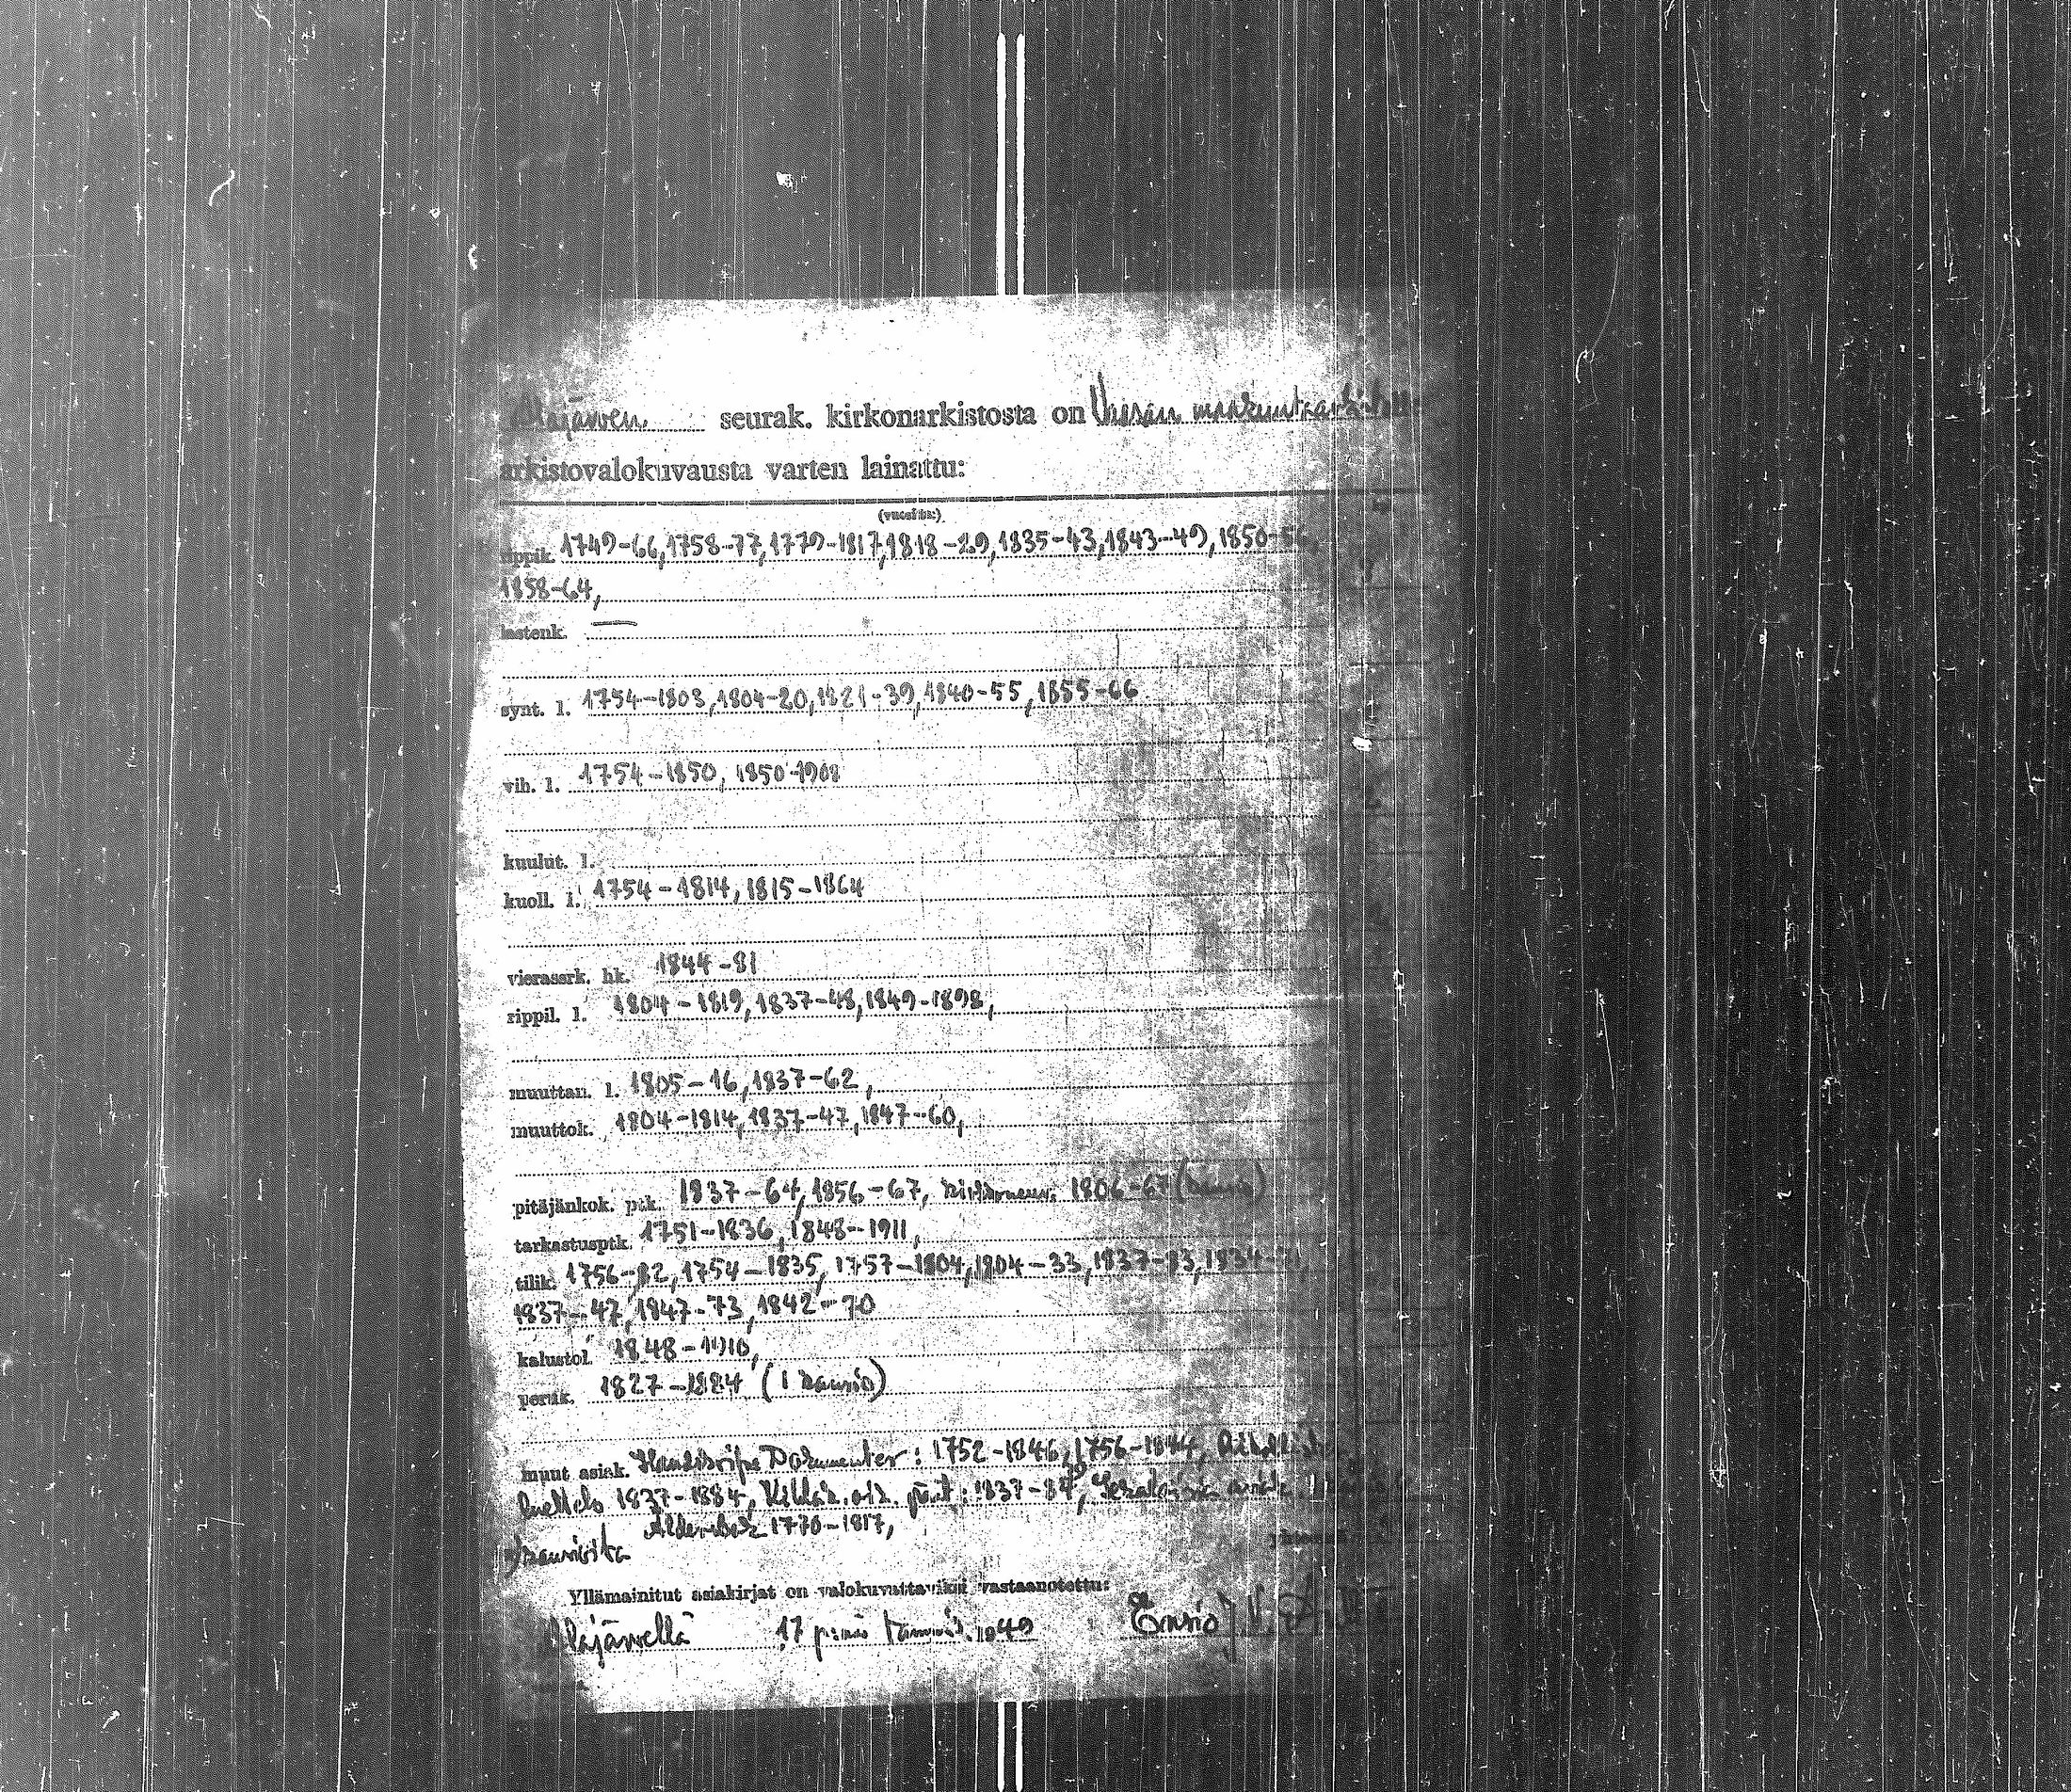 Alajärven seurak. kirkonarkistosta on Vaasan maakunta-arkistoon
arkistovalokuvausta varten lainattu:
(vuosilta:)
rippik. 1749-66, 1758-77, 1779-1817, 1818-29, 1835-43, 1843-49, 1850-56,
1858-64,
lastenk. —
synt. l. 1754-1803, 1804-20, 1821-39, 1840-55, 1855-66
vih. l. 1754-1850, 1850-1908
kuulut. l.
kuoll. l. 1754-1814, 1815-1864
vierassrk. hk. 1844-81
rippil. l. 1804-1819, 1837-48, 1849-1898,
muuttan. l. 1805-16, 1837-62,
muuttok. 1804-1814, 1837-47, 1847-60,
pitäjänkok. ptk. 1837-64, 1856-67, 1806-67
tarkastusptk. 1751-1836, 1848-1911,
tilik. 1756-82, 1754-1835, 1757-1804, 1804-33, 1837-83,
1837-47, 1847-73, 1842-70
kalustol. 1848-1910,
peruk. 1827-1884 (1 kansio)
muut asiak. Handskrifna Dokumenter: 1752-1846, 1756-1844,
luettelo 1837-1884, 1837-84,
Ålderdbok 1770-1817,
Yllämainitut asiakirjat on valokuvattaviksi vastaanotettu:
Alajärvellä 17 p:nä tammik. 1949 Ensio J.